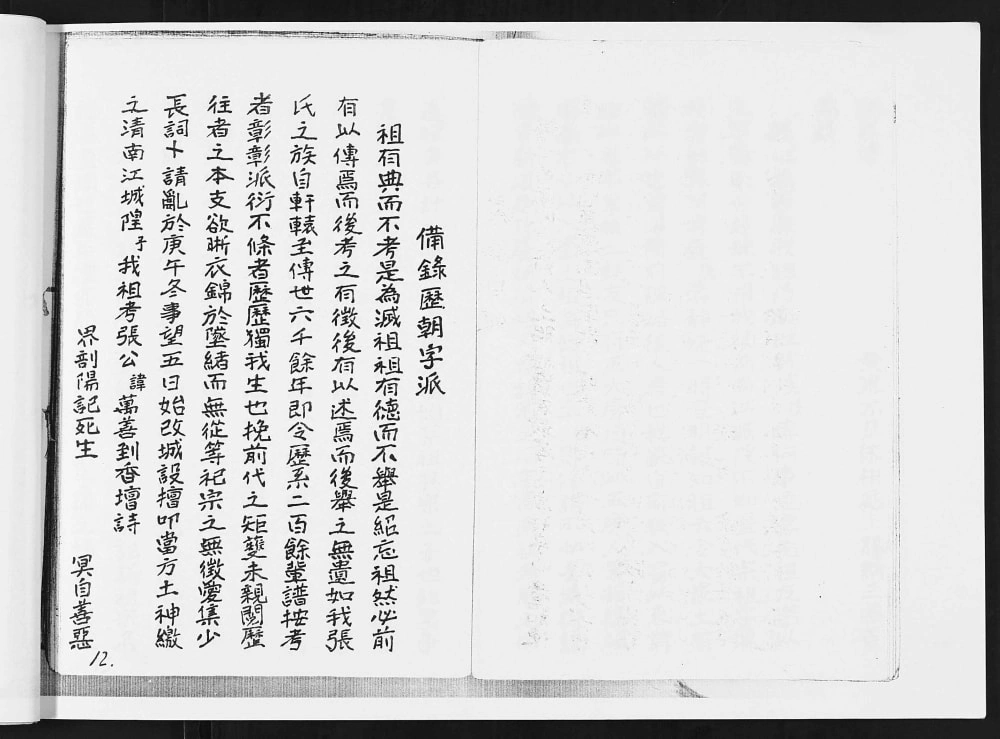 備錄歷朝字派
祖有典而不考是為滅祖祖有德而不舉是紹忘祖然必前
有以傳焉而後考之有徵後有以述焉而後舉之無遺如我張
氏之族自軒轅至傳世六千餘年即今歷系二百餘輩譜按考
者彰彰派衍不條者歷歷獨我生也挽前代之矩雙未親閱歷
往者之本支欲晰衣錦於墜緒而無從等祀宗之無徵愛集少
長詞卜請亂於庚午冬事望五日始改城設擅叩當方土神繳
之清南江城隍于我祖考張公諱萬善到香壇詩
界剖陽記死生 冥自善惡
12.